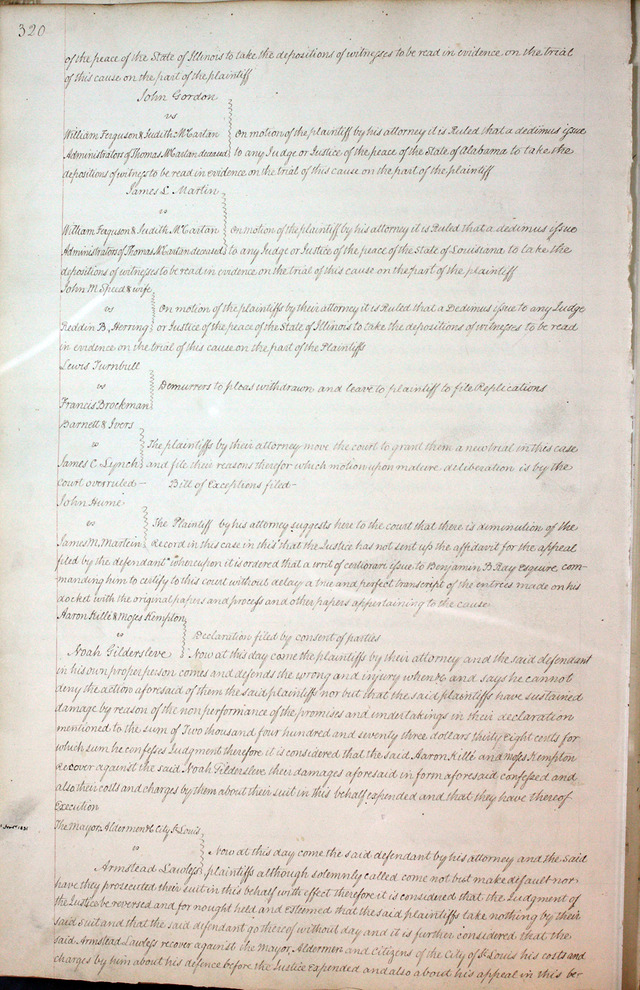 320
of the peace of the State of Illinois to take the depositions of witnesses to be read in evidence on the trial
of this cause on the part of the plaintiff
John Gordon
vs
William Ferguson & Judith McCartan
Administrators of Thomas McCartan deceased
On motion of the plaintiff by his attorney it is Ruled that a dedimus issue
to any Judge or Justice of the peace of the State of Alabama to take the
depositions of witness to be read in evidence on the trial of this cause on the part of the plaintiff
James L. Martin
vs
William Ferguson & Judith McCartan
Administrators of Thomas McCartan deceased
On motion of the plaintiff by his attorney it is Ruled that a dedimus issue
to any Judge or Justice of the peace of the State of Louisiana to take the
depositions of witnesses to be read in evidence on the trial of this cause on the part of the plaintiff
John M Speed & wife
vs
Reddin B. Herring
On motion of the plaintiffs by their attorney it is Ruled that a Dedimus issue to any Judge
or Justice of the peace of the State of Illinois to take the depositions of witnesses to be read
in evidence on the trial of this cause on the part of the Plaintiffs
Lewis Turnbull
vs
Francis Brockman
Demurrers to pleas withdrawn and leave to plaintiff to file Replications
Barnett & Ivers
vs
James C. Lynch
The plaintiffs by their attorney move the court to grant them a new trial in this case
and file their reasons therefor which motion upon mature deliberation is by the
Court overruled— Bill of Exceptions filed—
John Hume
vs
James M. Martein
The Plaintiff by his attorney suggests here to the court that there is diminution of the
Record in this case in this that the Justice has not sent up the affidavit for the appeal
filed by the defendant whereupon it is ordered that a writ of certiorari issue to Benjamin B Ray esquire com-
manding him to certify to this court without delay a true and perfect transcript of the entrees made on his
docket with the original papers and process and other papers appertaining to the cause
Aaron Kille & Moses Kempton
vs
Noah Gildersleve
Declaration filed by consent of parties
Now at this day come the plaintiffs by their attorney and the said defendant
in his own proper person comes and defends the wrong and injury when &c and says he cannot
deny the action aforesaid of them the said plaintiffs nor but that the said plaintiffs have sustained
damage by reason of the non performance of the promises and undertakings in their declaration
mentioned to the sum of Two thousand four hundred and seventy three dollars thirty eight cents for
which sum he confesses Judgment therefore it is considered that the said Aaron Kille and Moses Kempton
Recover against the said Noah Gildersleve their damages aforesaid in form aforesaid confessed and
also their costs and charges by them about their suit in this behalf expended and that they have thereof
Execution
The Mayor, Aldermen &c City St Louis
vs
Armstead Lawless
Now at this day come the said defendant by his attorney and the said
plaintiffs although solemnly called come not but make default nor
have they prosecuted their suit in this behalf with effect therefore it is considered that the Judgment of
the Justice be reversed and for nought held and esteemed that the said plaintiffs take nothing by their
said suit and that the said defendant go thereof without day and it is further considered that the
said Armstead Lawless recover against the Mayor, Aldermen and Citizens of the City of St Louis his costs and
charges by him about his defence before the Justice Expended and also about his appeal in this be-